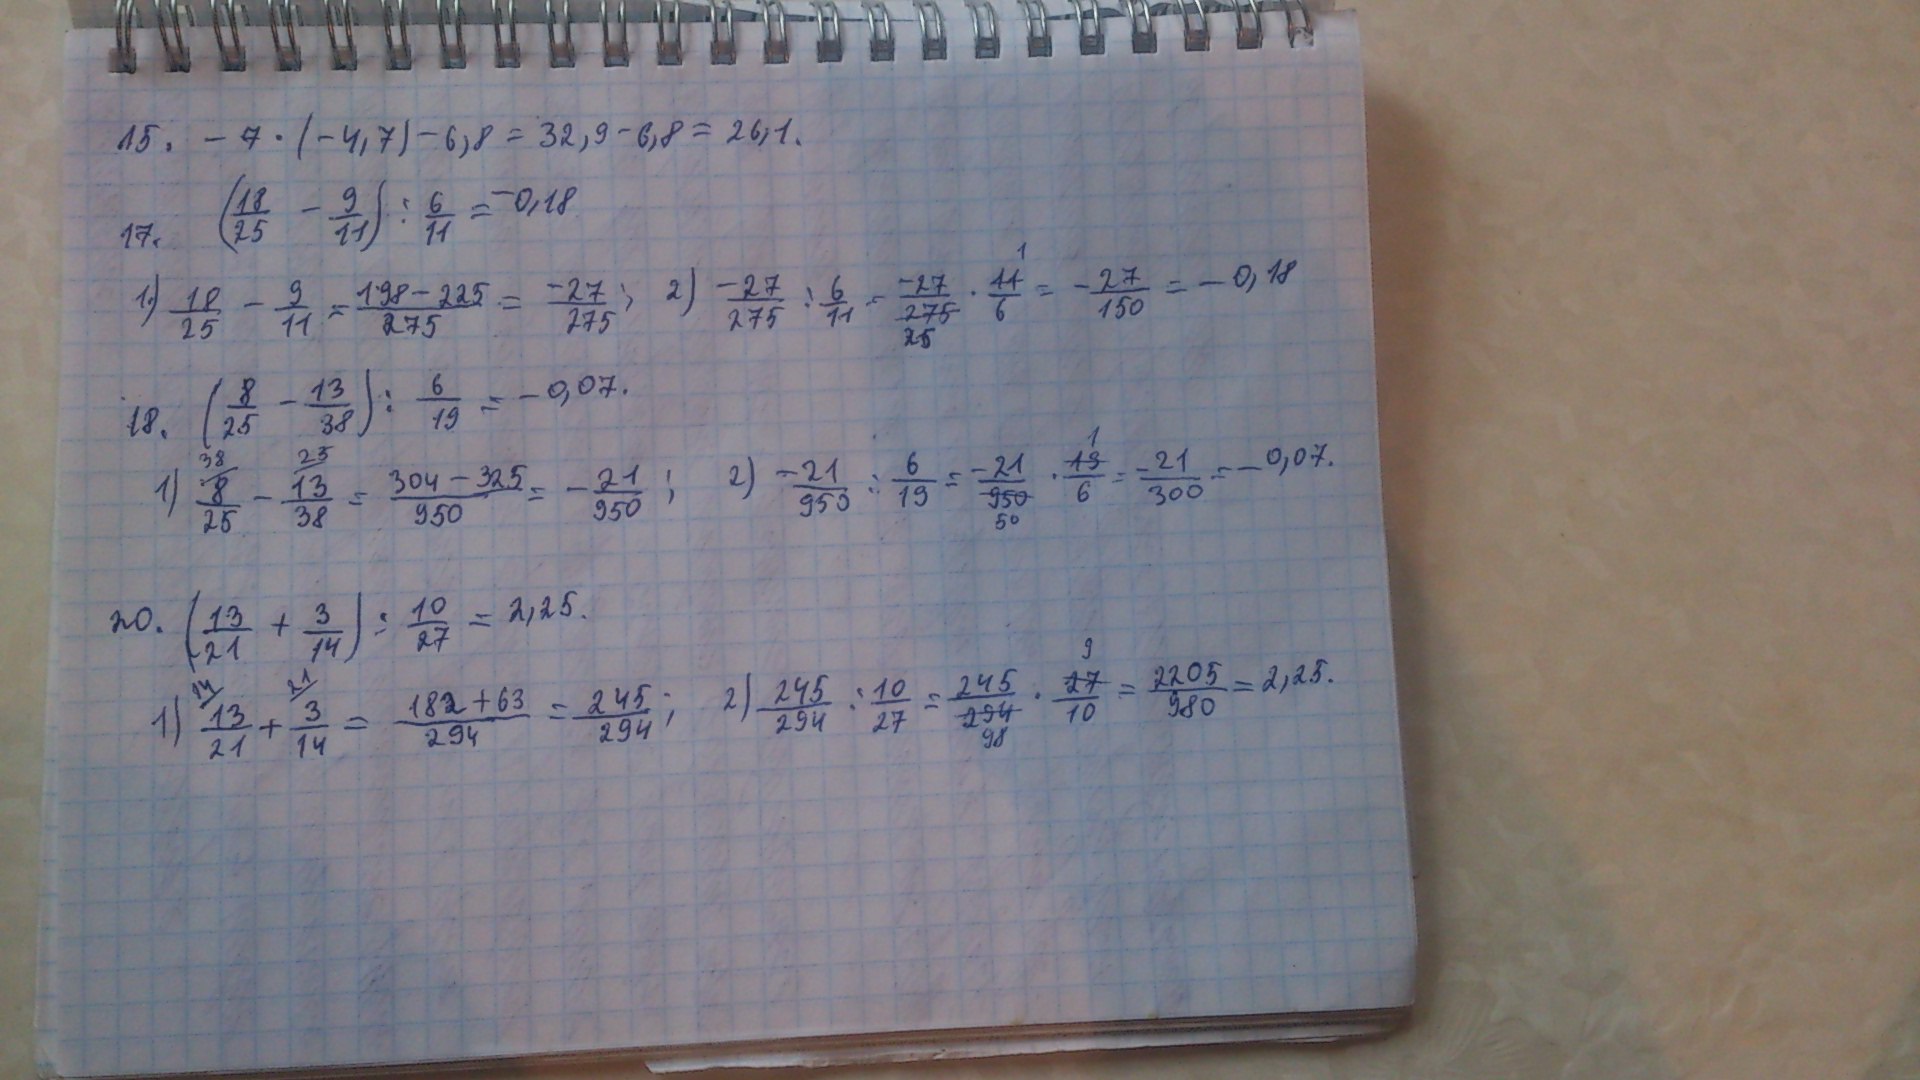 15. - 7 · (-4,7) - 6,8 = 32,9 - 6,8 = 26,1.
17. (18/25 - 9/11) : 6/11 = -0,18
1) 18/25 - 9/11 = 198-225/275 = -27/275; 2) -27/275 : 6/11 = -27/275 25 · 1 11/6 = -27/150 = -0,18
18. (8/25 - 13/38) : 6/19 = -0,07.
1) 38/ 8/25 - 25/ 13/38 = 304-325/950 = -21/950; 2) -21/950 : 6/19 = -21/950 50 · 1 19/6 = -21/300 = -0,07.
20. (13/21 + 3/14) : 10/27 = 2,25.
1) 14/ 13/21 + 21/ 3/14 = 182+63/294 = 245/294; 2) 245/294 : 10/27 = 245/294 98 · 9 27/10 = 2205/980 = 2,25.